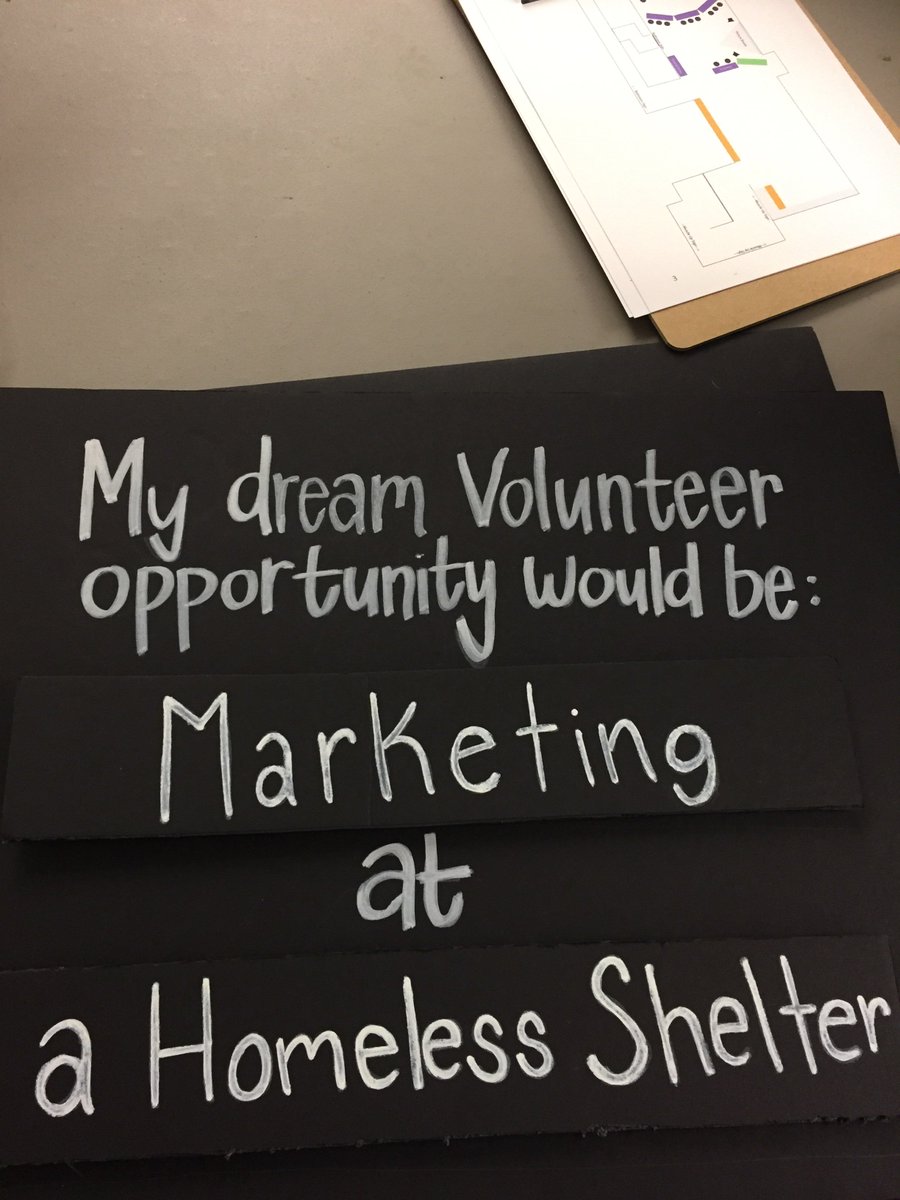 3
My dream Volunteer
opportunity would be:
Marketing
at
a Homeless Shelter